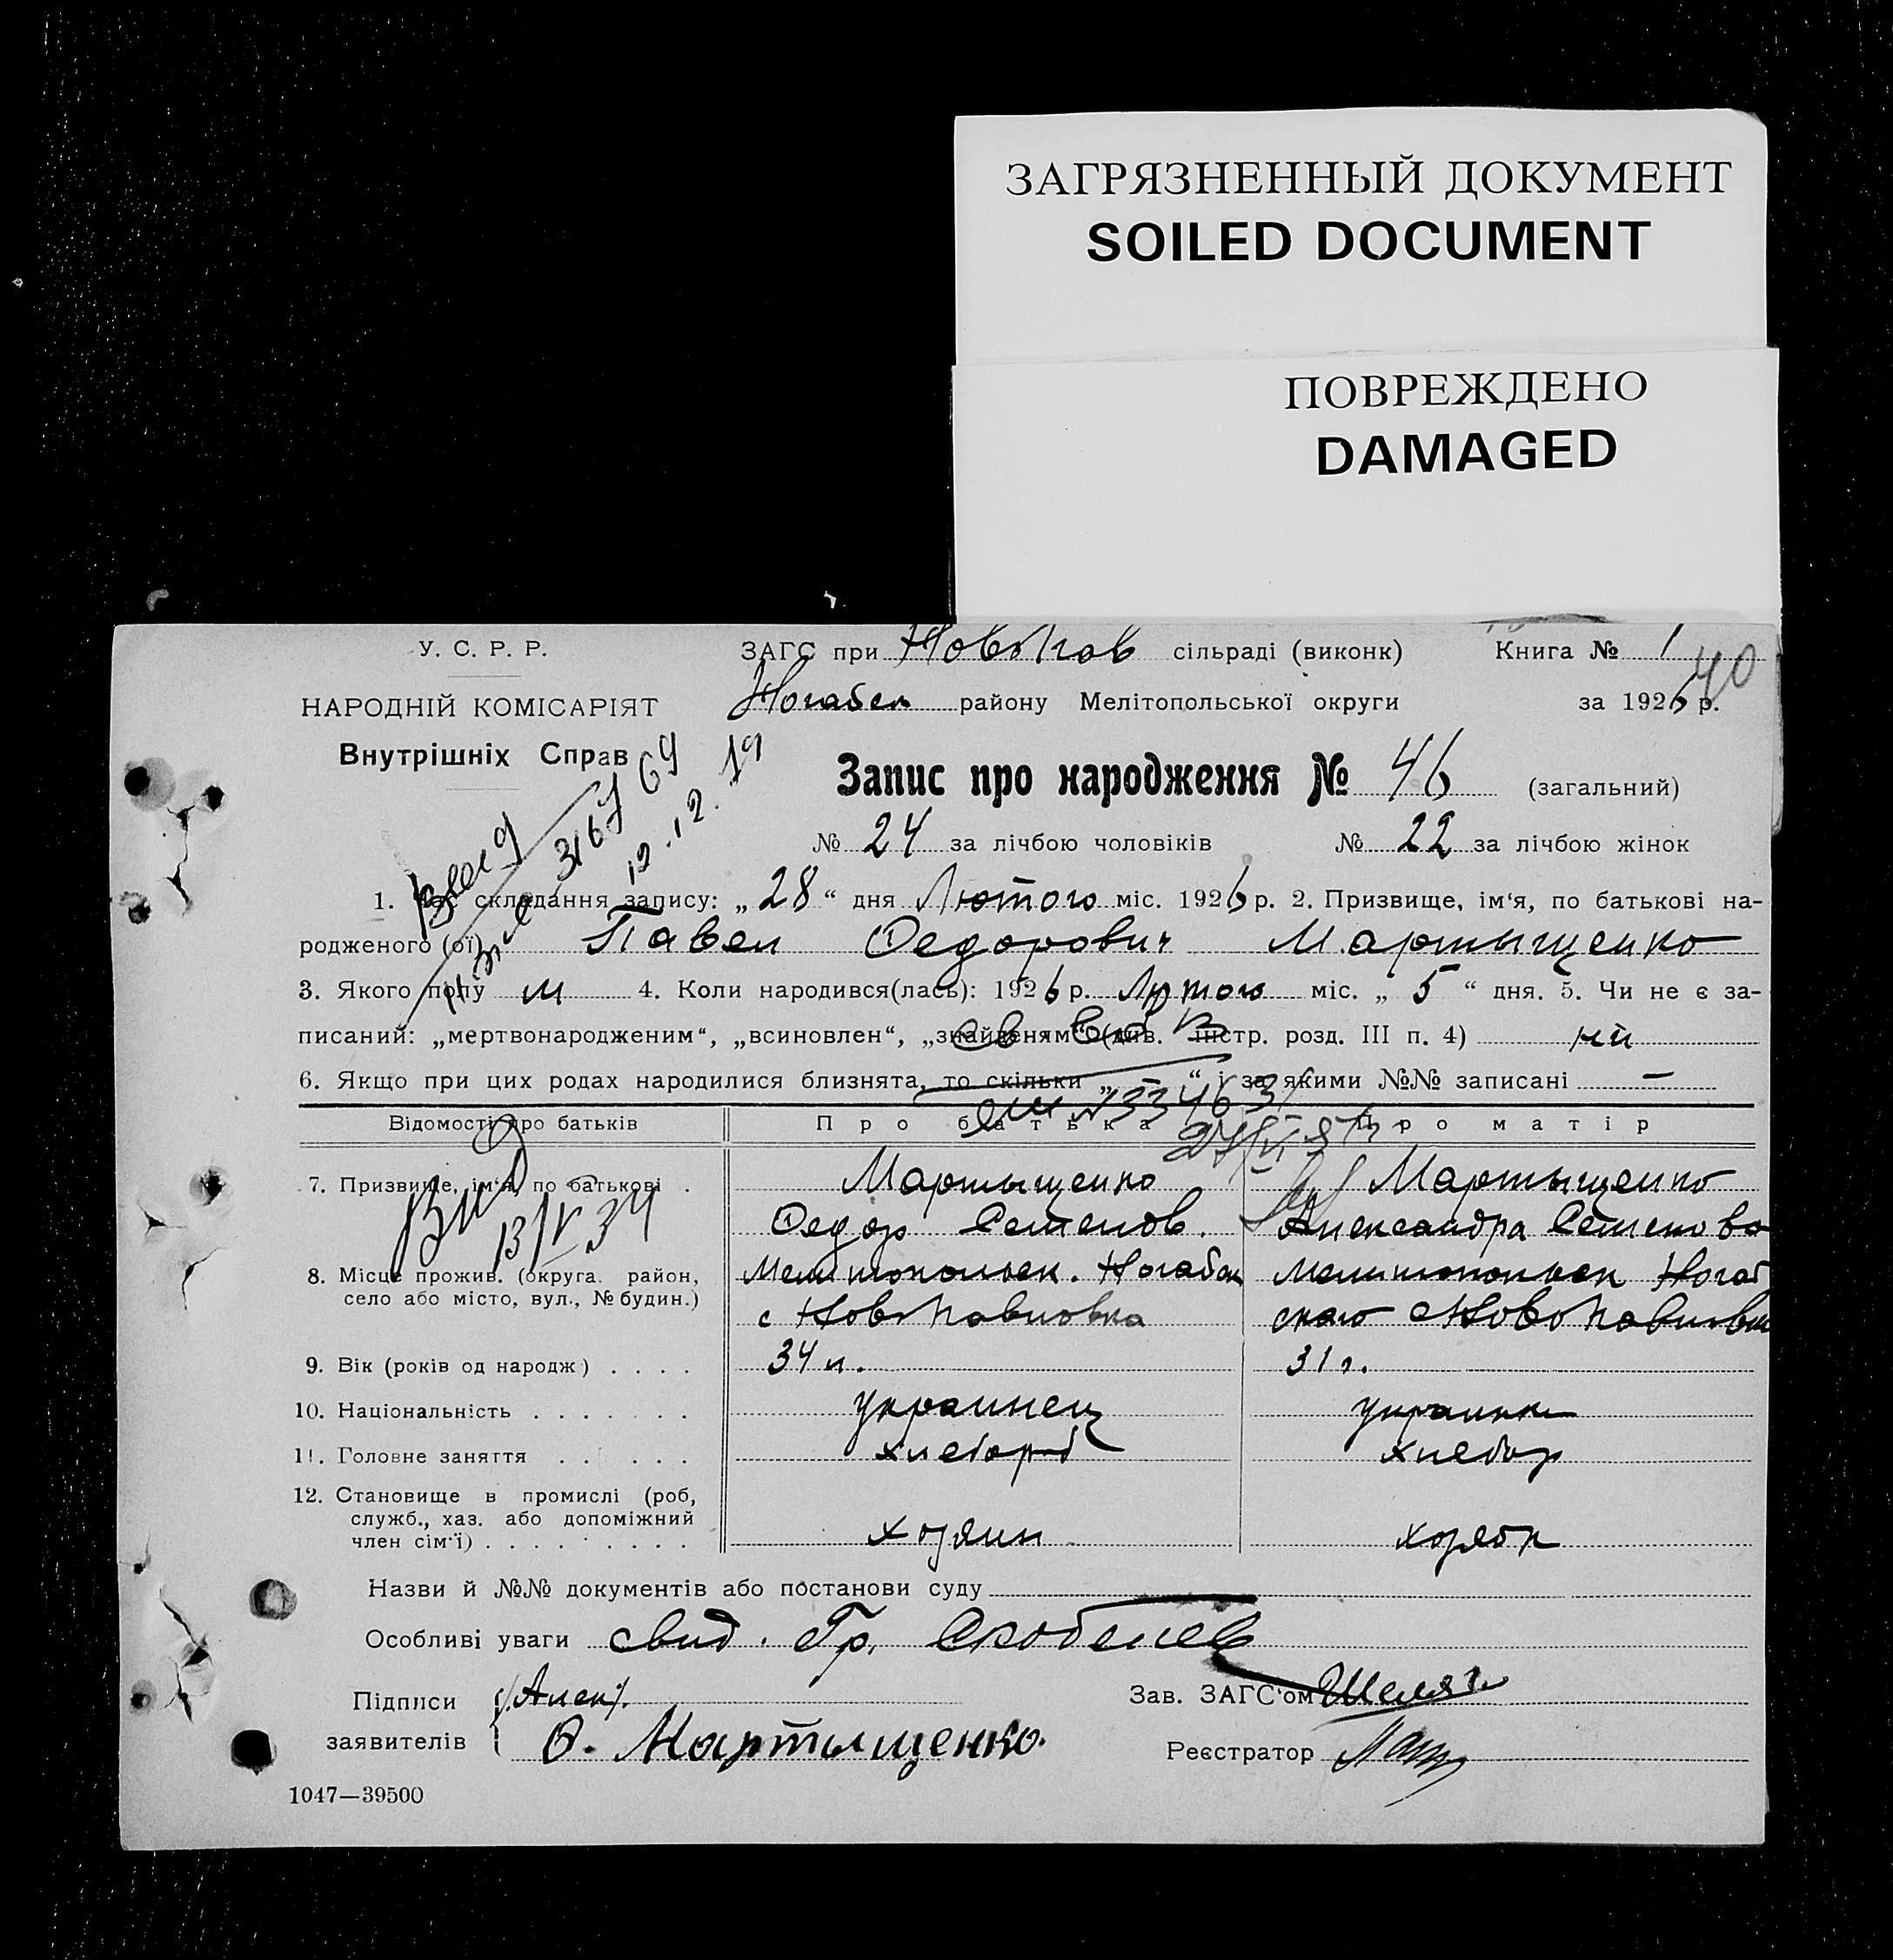 ЗАГРЯЗНЕННЫЙ ДОКУМЕНТ
SOILED DOCUMENT
ПОВРЕЖДЕНО
DAMAGED
У. С. Р. Р.
ЗАГС при НовоПав сільраді (виконк) Книга № 1
40
НАРОДНІЙ КОМІСАРІЯТ
Ногабск району Мелітопольської округи за 1926 р.
Внутрішніх Справ
Запис про народження № 46 (загальний)
№ 24 за лічбою чоловіків № 22 за лічбою жінок
1. Час складання запису: „28“ дня Лютого міс. 1926 р. 2. Призвище, ім‘я, по батькові на-
родженого (ої) Павел Федорович Мартыщенко
3. Якого полу м 4. Коли народився(лась): 1926 р. Лютого міс. „5“ дня. 5. Чи не є за-
писаний: „мертвонародженим“, „всиновлен“, „знайденям“ (див. інстр. розд. III п. 4) ни
6. Якщо при цих родах народилися близнята, то скільки „—“ і за якими №№ записані —
Відомості про батьків Про батька Про матір
7. Призвище, ім‘я, по батькові . Мартыщенко Мартыщенко
Федор Семенов. Александра Семенова
8. Місце прожив. (округа, район, Мелитопольск. Ногабск Мелитопольск Ногаб
село або місто, вул., № будин.) с НовоПавловка скаго с НовоПавловк
9. Вік (років од народж) . . . . 34 л. 31 г.
10. Національність . . . . . . . украинец украинк
11. Головне заняття . . . . . . хлебороб хлебор
12. Становище в промислі (роб,
служб., хаз. або допоміжний
член сім‘ї) . . . . . . . . . хозяин хозяйк
Назви й №№ документів або постанови суду
Особливі уваги свид. Гр. Скобелев
Підписи Алек. Зав. ЗАГС‘ом
заявителів Ф. Мартыщенко. Реєстратор
1047—39500